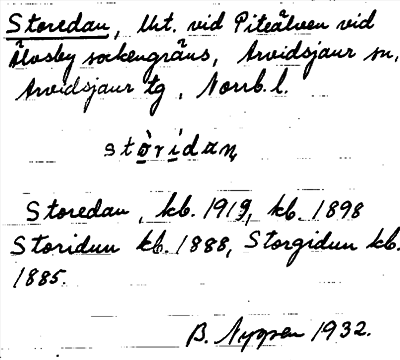 Storedan, Urt. vid Piteälven vid
Älvsby sockengräns, Arvidsjaur sn,
Arvidsjaur tg, Norrb. l.
stòrídan,
Storedan, kb. 1919, kb. 1898
Storidun kb. 1888, Storgidun kb.
1885.
B. 1932.